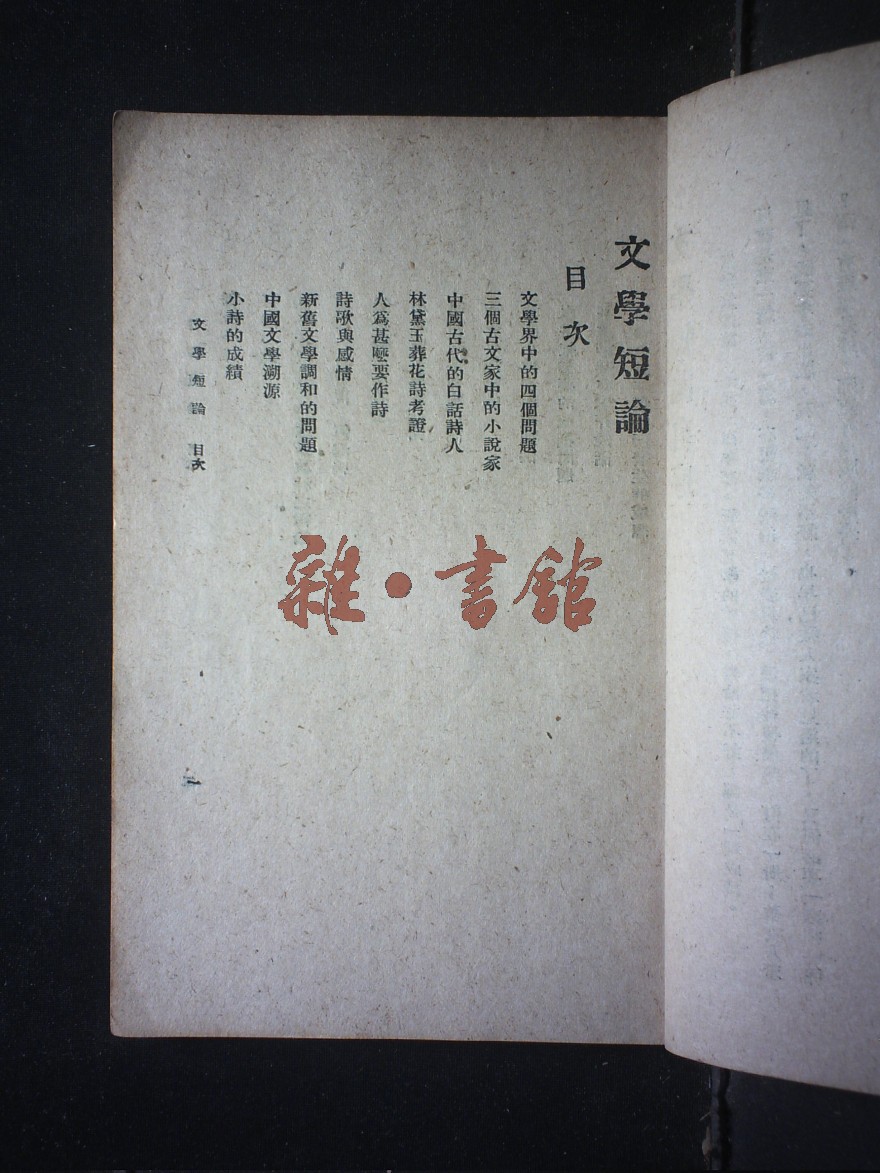 文學短論
目次
文學界中的四個問題
三個古文家中的小說家
中國古代的白話詩人
林黛玉葬花詩考證
人爲甚麼要作詩
詩歌與感情
新舊文學調和的問題
中國文學溯源
小詩的成績
文學短論 目次
一
雜·書館